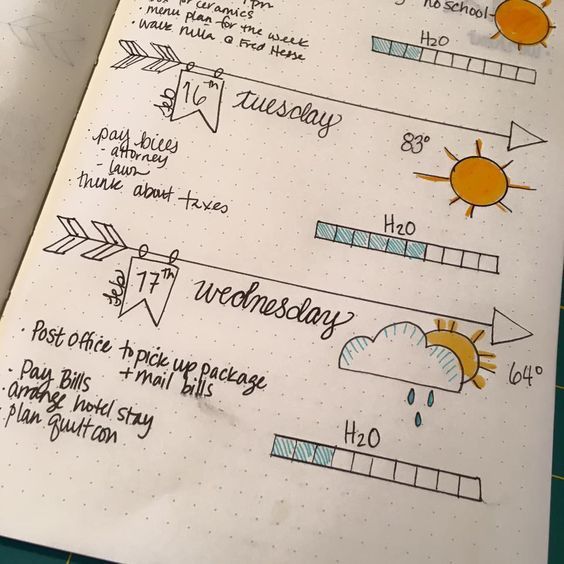 no school
for ceramics
menu plan for the week
wave nulla @ Fred Hesse
H2O
Feb 16th
tuesday
83°
pay bills
- attorney
- lawn
think about taxes
H2O
Feb 17th
wednesday
64°
Post Office to pick up package
+ mail bills
Pay Bills
arrange hotel stay
plan quiltcon
H2O